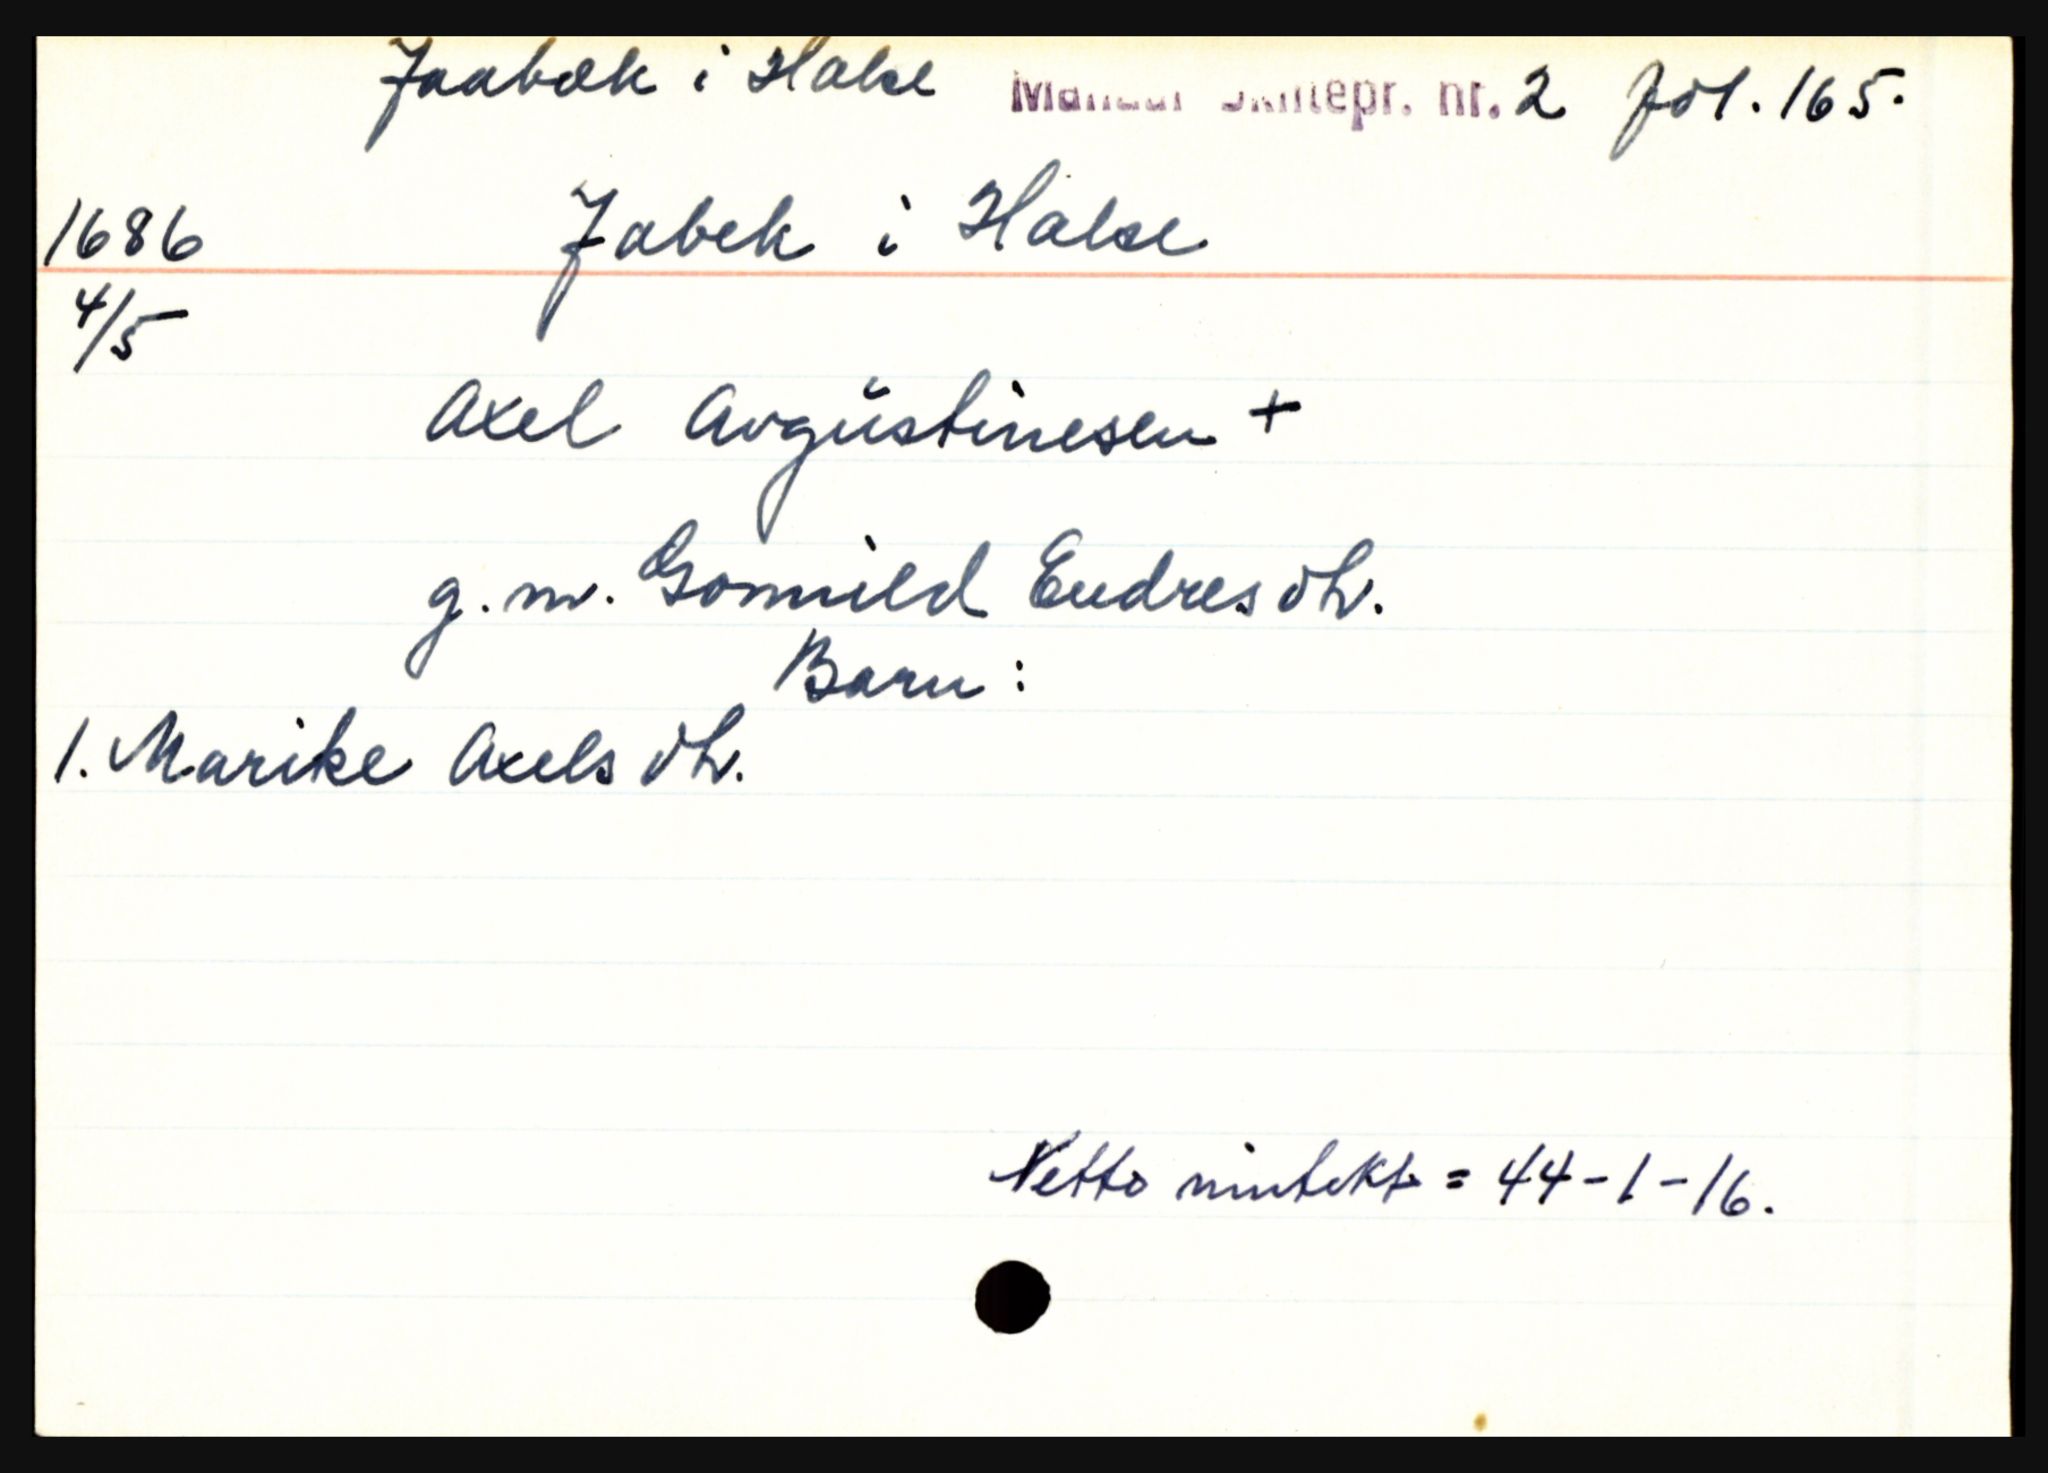 Jaabæk i Halse Mandal Skiftepr. nr. 2 fol. 165.
1686 Jabek i Halse
4/5
Axel Avgŭstinesen +
g. m. Gonnild Endresdtr.
Barn:
1. Marike Axelsdtr.
Netto inntekt = 44-1-16.